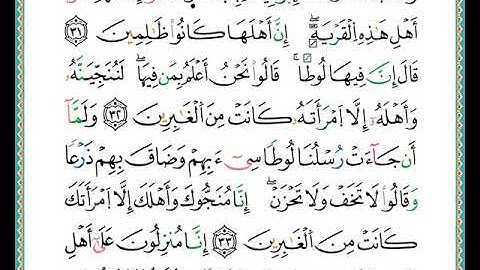 أَهْلِ هَٰذِهِ الْقَرْيَةِ ۖ إِنَّ أَهْلَهَا كَانُوا ظَٰلِمِينَ ٣١
قَالَ إِنَّ فِيهَا لُوطًا ۚ قَالُوا نَحْنُ أَعْلَمُ بِمَن فِيهَا ۖ لَنُنَجِّيَنَّهُ
وَأَهْلَهُ إِلَّا امْرَأَتَهُ كَانَتْ مِنَ الْغَٰبِرِينَ ٣٢ وَلَمَّا
أَن جَاءَتْ رُسُلُنَا لُوطًا سِيءَ بِهِمْ وَضَاقَ بِهِمْ ذَرْعًا
وَقَالُوا لَا تَخَفْ وَلَا تَحْزَنْ ۖ إِنَّا مُنَجُّوكَ وَأَهْلَكَ إِلَّا امْرَأَتَكَ
كَانَتْ مِنَ الْغَٰبِرِينَ ٣٣ إِنَّا مُنزِلُونَ عَلَىٰ أَهْلِ